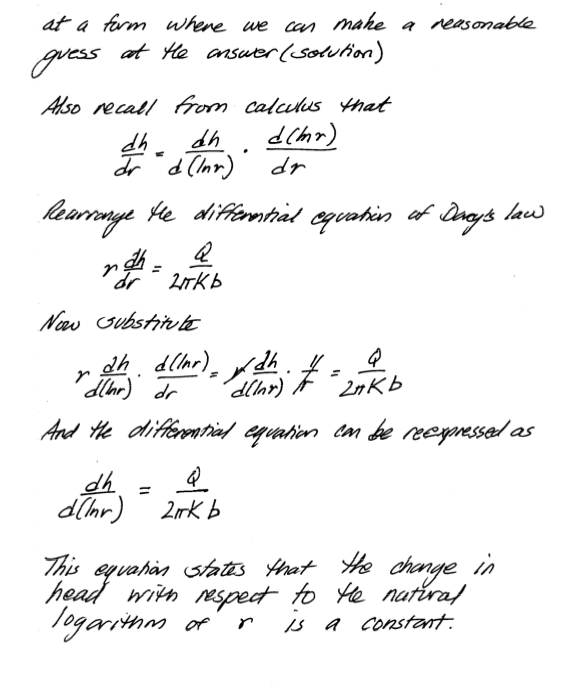 at a form where we can make a reasonable
guess at the answer (solution)
Also recall from calculus that
dh/dr = dh/d(lnr) · d(lnr)/dr
Rearrange the differential equation of Darcy's law
r dh/dr = Q/2πKb
Now substitute
r dh/d(lnr) · d(lnr)/dr = r dh/d(lnr) · 1/r = Q/2πKb
And the differential equation can be reexpressed as
dh/d(lnr) = Q/2πKb
This equation states that the change in
head with respect to the natural
logarithm of r is a constant.